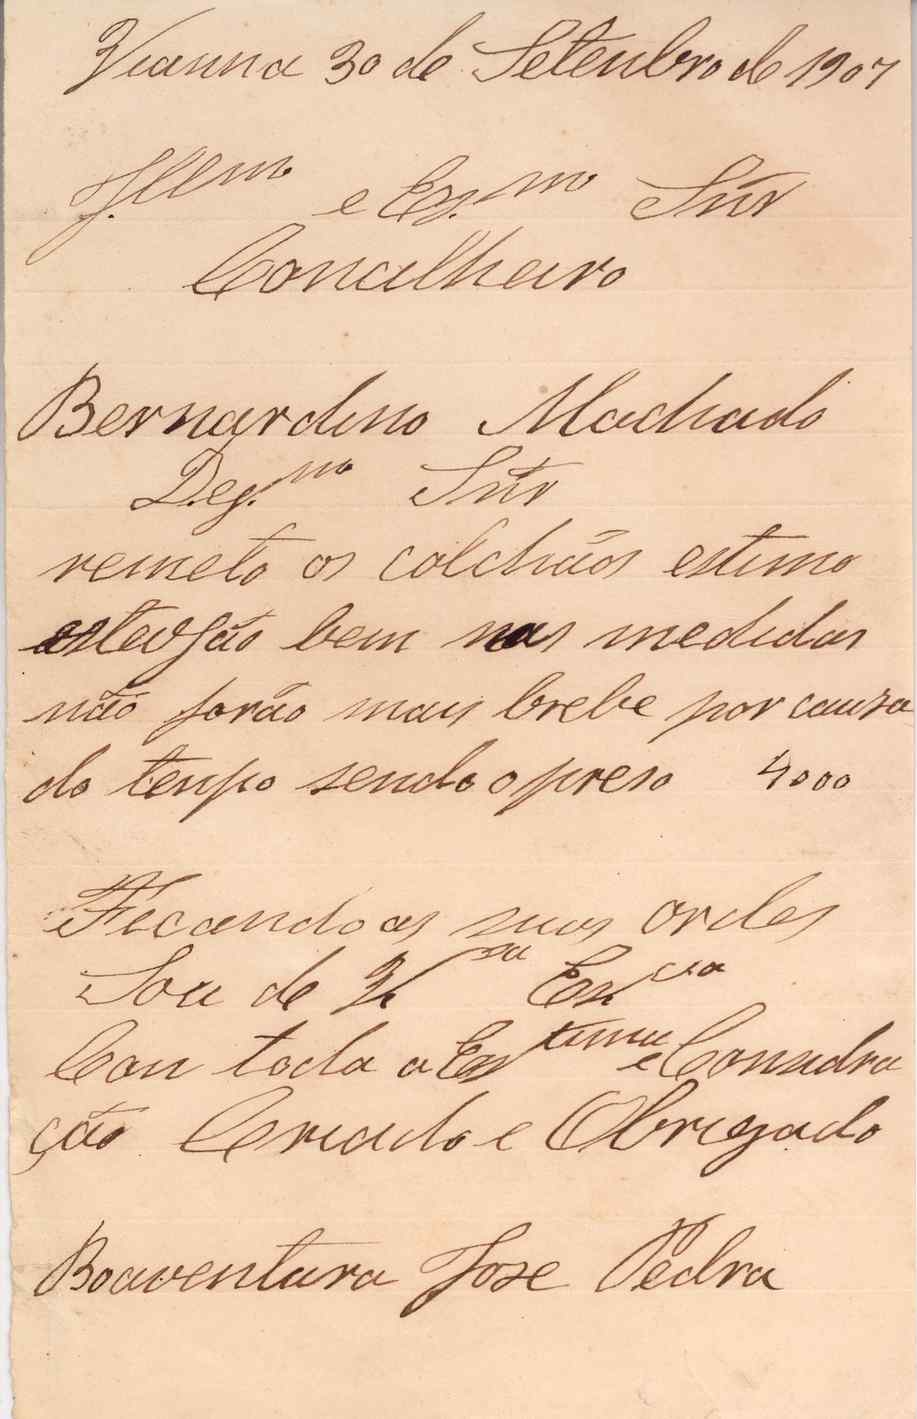 Vianna 30 de Setenbro de 1907
Illmo e Ex.mo Snr
Conalheiro
Bernardino Machado
Deg.mo Snr
remeto os colchãos estimo
estejão bem nas medidas
não forão mais brebe por cauza
do tenpo sendo o preso 4000
Ficando as suas ordes
Sou de V.sa Ex.cia
Con toda a Estima e Considra
ção Criado e Obrigado
Boaventura Jose Pedra